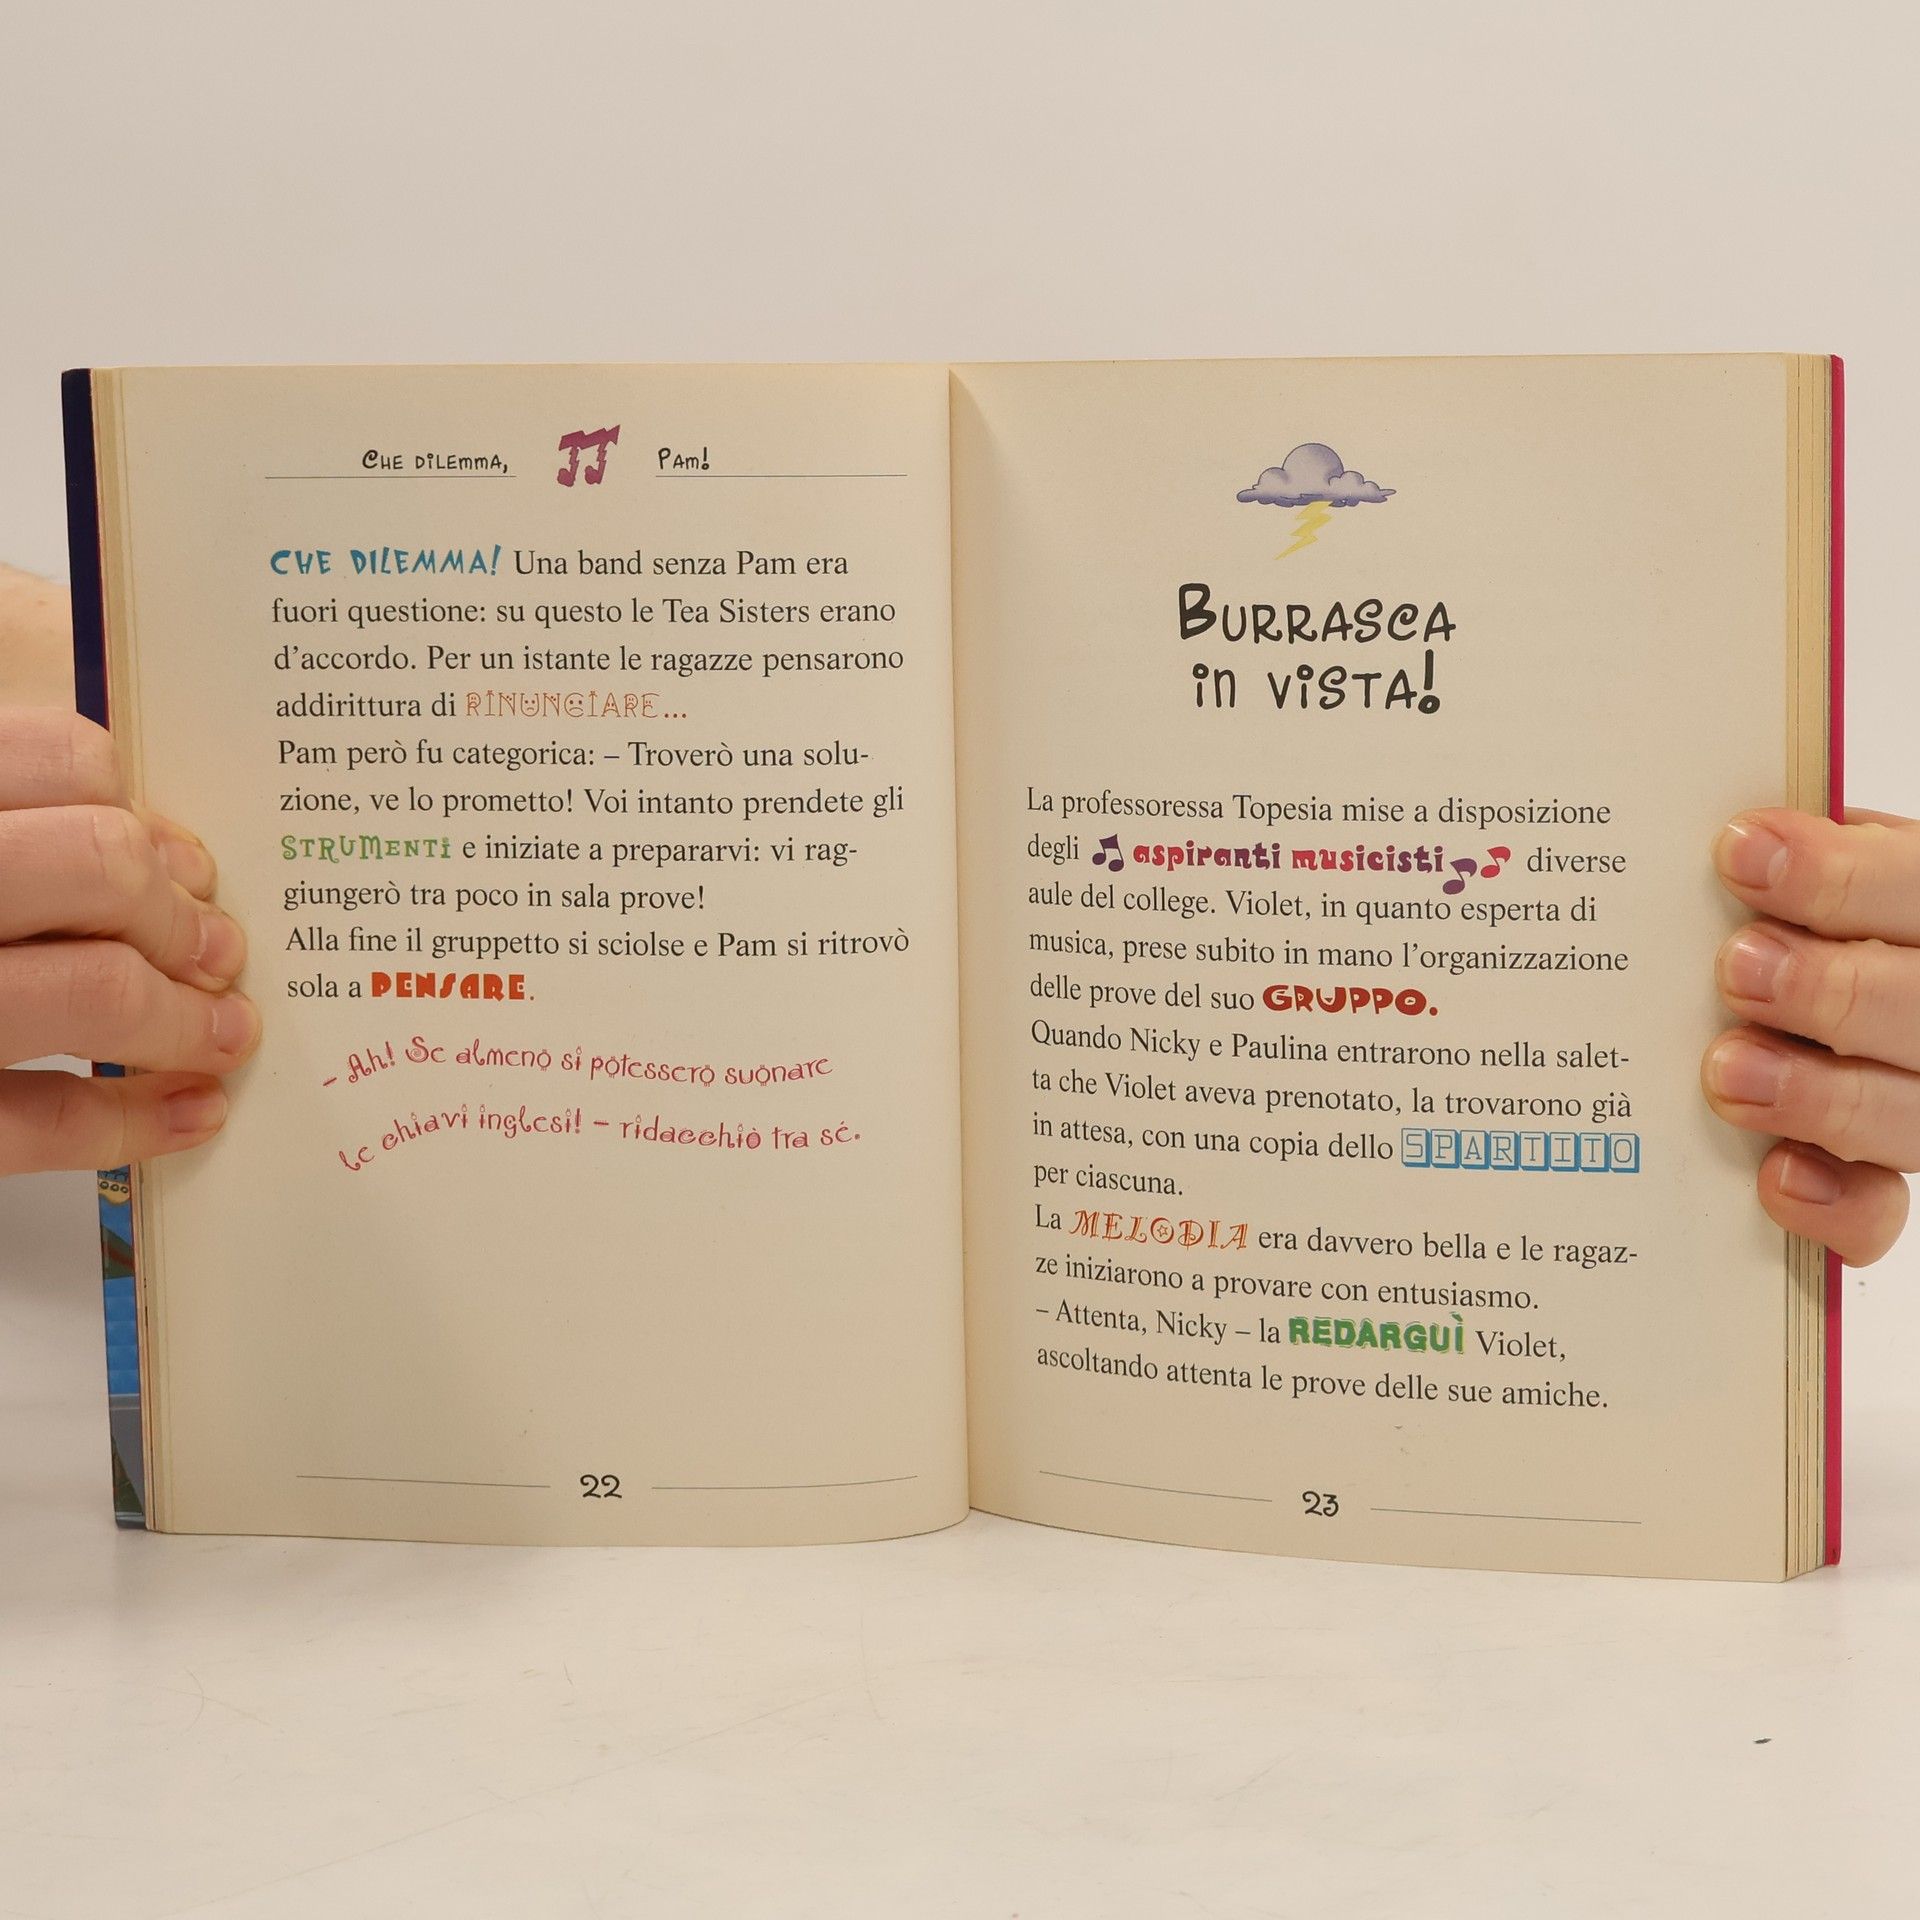 CHE DILEMMA, PAM!
CHE DILEMMA! Una band senza Pam era
fuori questione: su questo le Tea Sisters erano
d'accordo. Per un istante le ragazze pensarono
addirittura di RINUNCIARE...
Pam però fu categorica: – Troverò una solu-
zione, ve lo prometto! Voi intanto prendete gli
STRUMENTI e iniziate a prepararvi: vi rag-
giungerò tra poco in sala prove!
Alla fine il gruppetto si sciolse e Pam si ritrovò
sola a PENSARE.
– Ah! Se almeno si potessero suonare
le chiavi inglesi! – ridacchiò tra sé.
22
BURRASCA
in VISTA!
La professoressa Topesia mise a disposizione
degli aspiranti musicisti diverse
aule del college. Violet, in quanto esperta di
musica, prese subito in mano l'organizzazione
delle prove del suo GRUPPO.
Quando Nicky e Paulina entrarono nella salet-
ta che Violet aveva prenotato, la trovarono già
in attesa, con una copia dello SPARTITO
per ciascuna.
La MELODIA era davvero bella e le ragaz-
ze iniziarono a provare con entusiasmo.
– Attenta, Nicky – la REDARGUÌ Violet,
ascoltando attenta le prove delle sue amiche.
23